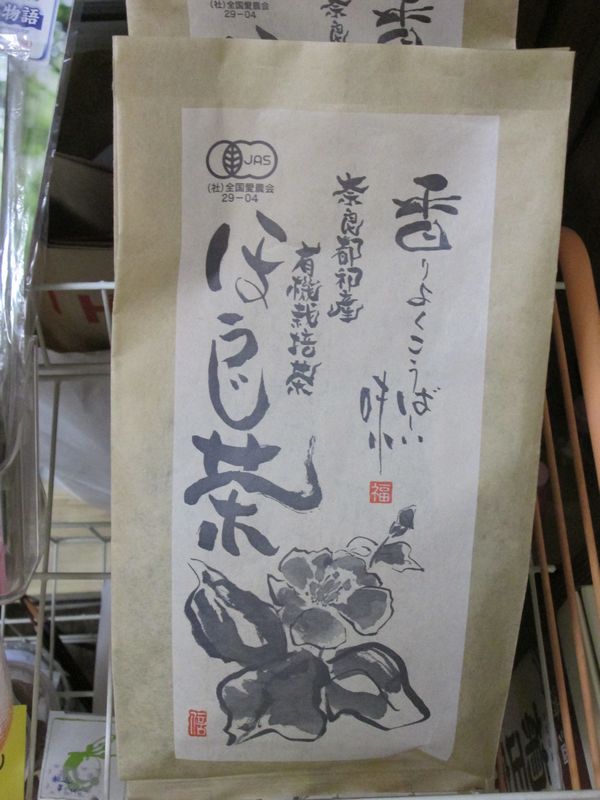 物語
(社)全国愛農会
29-04
奈良
香
JAS
(社)全国愛農会
29-04
香りよくこうばしい
味
奈良都祁産
有機栽培茶
ほうじ茶
福
信